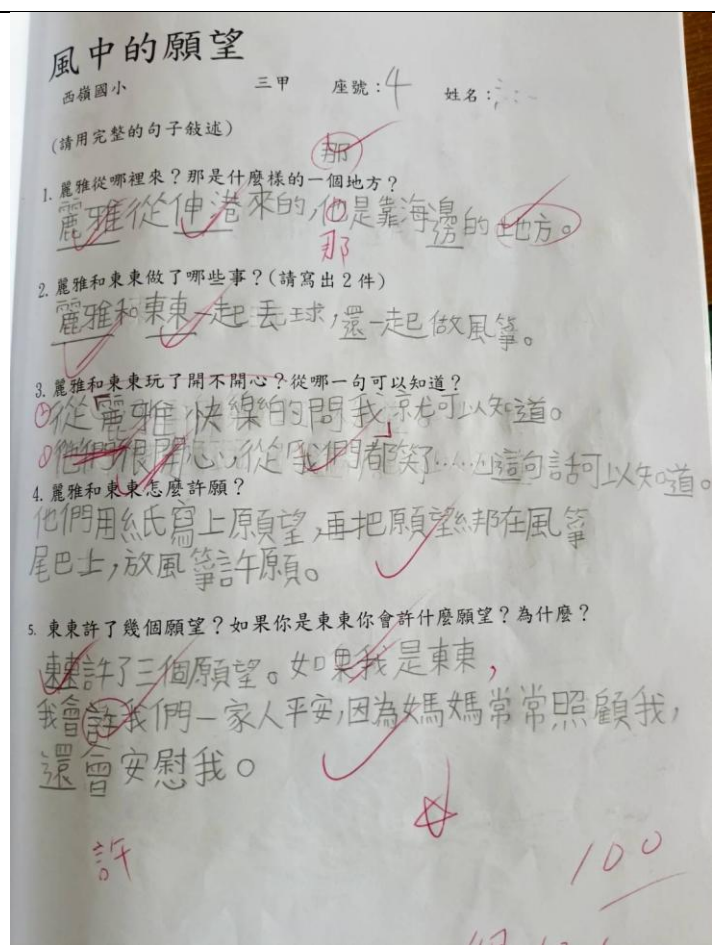 風中的願望
西嶺國小 三甲 座號：4 姓名：
(請用完整的句子敍述)
那
1. 麗雅從哪裡來？那是什麼樣的一個地方？
麗雅從伸港來的，他是靠海邊的地方。
那
2. 麗雅和東東做了哪些事？(請寫出2件)
麗雅和東東一起丟球，還一起做風箏。
3. 麗雅和東東玩了開不開心？從哪一句可以知道？
②從「麗雅快樂的問我」就可以知道。
①他們很開心，從「我們都笑了……」這句話可以知道。
4. 麗雅和東東怎麼許願？
他們用紙寫上願望，再把願望綁在風箏
尾巴上，放風箏許願。
5. 東東許了幾個願望？如果你是東東你會許什麼願望？為什麼？
東東許了三個願望。如果我是東東，
我會許我們一家人平安，因為媽媽常常照顧我，
還會安慰我。
許
100